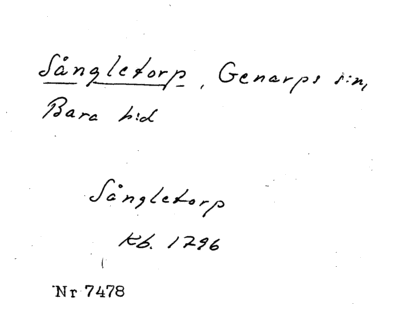 Sångletorp, Genarps s:n,
Bara h:d
Sångletorp
Kb. 1796
Nr 7478